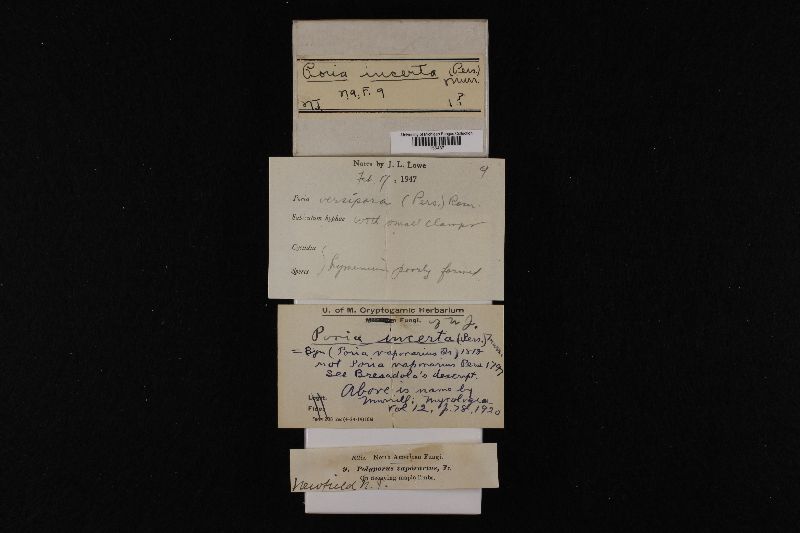 Poria incerta (Pers.)
Murr.
N.A.F. 9
N.J. 1?
University of Michigan Fungus Collection
Notes by J. L. Lowe
9
Feb 17, 1947
Poria versipora (Pers.) Rom.
Subiculum hyphae with small clamps
Cystidia
Spores } hymenium poorly formed
U. of M. Cryptogamic Herbarium
Michigan Fungi. of N.J.
Poria incerta (Pers.) Murr.
= Syn (Poria vaporarius Fr.) 1818
not Poria vaporarius Pers 1797
See Bresadola's descript.
Above is name by
Legit. Murrill: Mycologia
Fide: Vol 12, p. 78, 1920
Ellis. North American Fungi.
9. Polyporus vaporarius, Fr.
On decaying maple limbs.
Newfield N.J.